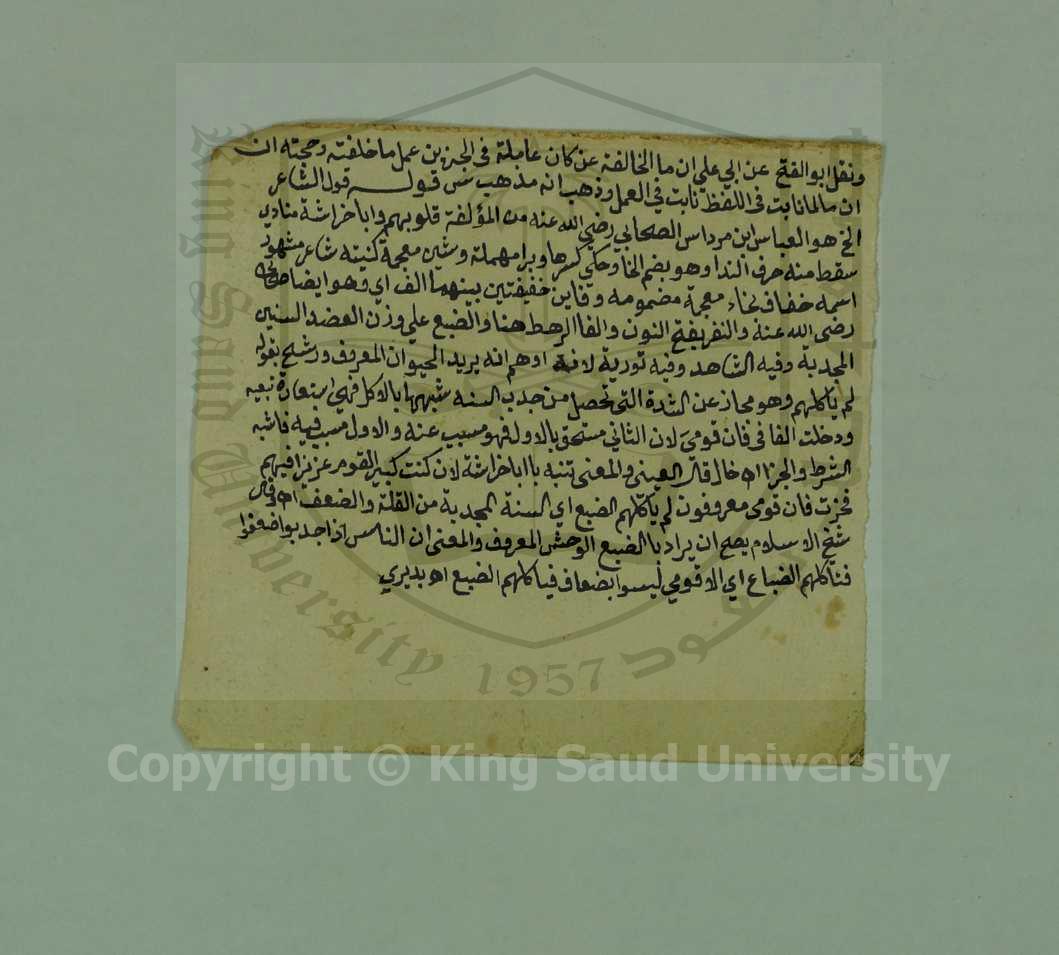 ونقل ابو الفتح عن ابي علي ان ما الخالفة عن كان عاملة في الجزءين عمل ما خلفته وحجته ان
ان ما لما نابت في اللفظ نابت في العمل وذهب انه مذهب س قوله قول الشاعر
الخ هو العباس ابن مرداس الصحابي رضي الله عنه من المؤلفة قلوبهم وابا خراشة منادي
سقط منه حرف الندا وهو بضم الخا وحكي كسرها وبرا مهملة وشين معجمة كنيته شاعر مشهور
اسمه خفاف بخاء معجمة مضمومه وفاين خفيفتين بينهما الف اي وهو ايضا صحابي
رضي الله عنه والنفر بفتح النون والفا الرهط هنا والضبع علي وزن العضد السنين
المجدبة وفيه الشاهد وفيه تورية لانه اوهم انه يريد الحيوان المعروف ورشح بقوله
لم يأكلهم وهو مجاز عن الشدة التي تحصل من جدب السنه شبهها بالاكل فهي استعارة تبعيه
ودخلت الفا في فان قومي لان الثاني مستحق بالاول فهو مسبب عنه والاول سبب فيه فاشبه
الشرط والجزا اه خا قال العيني والمعنى تنبه يا ابا خراشة لان كنت كبير القوم عزيزا فيهم
فخرت فان قومي معروفون لم يأكلهم الضبع اي السنة المجدبة من القلة والضعف اه وقال
شيخ الاسلام يصح ان يراد بالضبع الوحش المعروف والمعنى ان الناس اذا اجدبوا ضعفوا
فتاكلهم الضباع اي الا قومي ليسوا بضعاف فياكلهم الضبع اه بديري
King Saud University
1957
Copyright © King Saud University